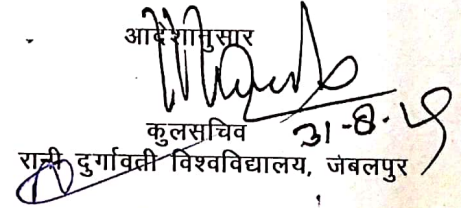 आदेशानुसार
कुलसचिव
31-8-
रानी दुर्गावती विश्वविद्यालय, जबलपुर